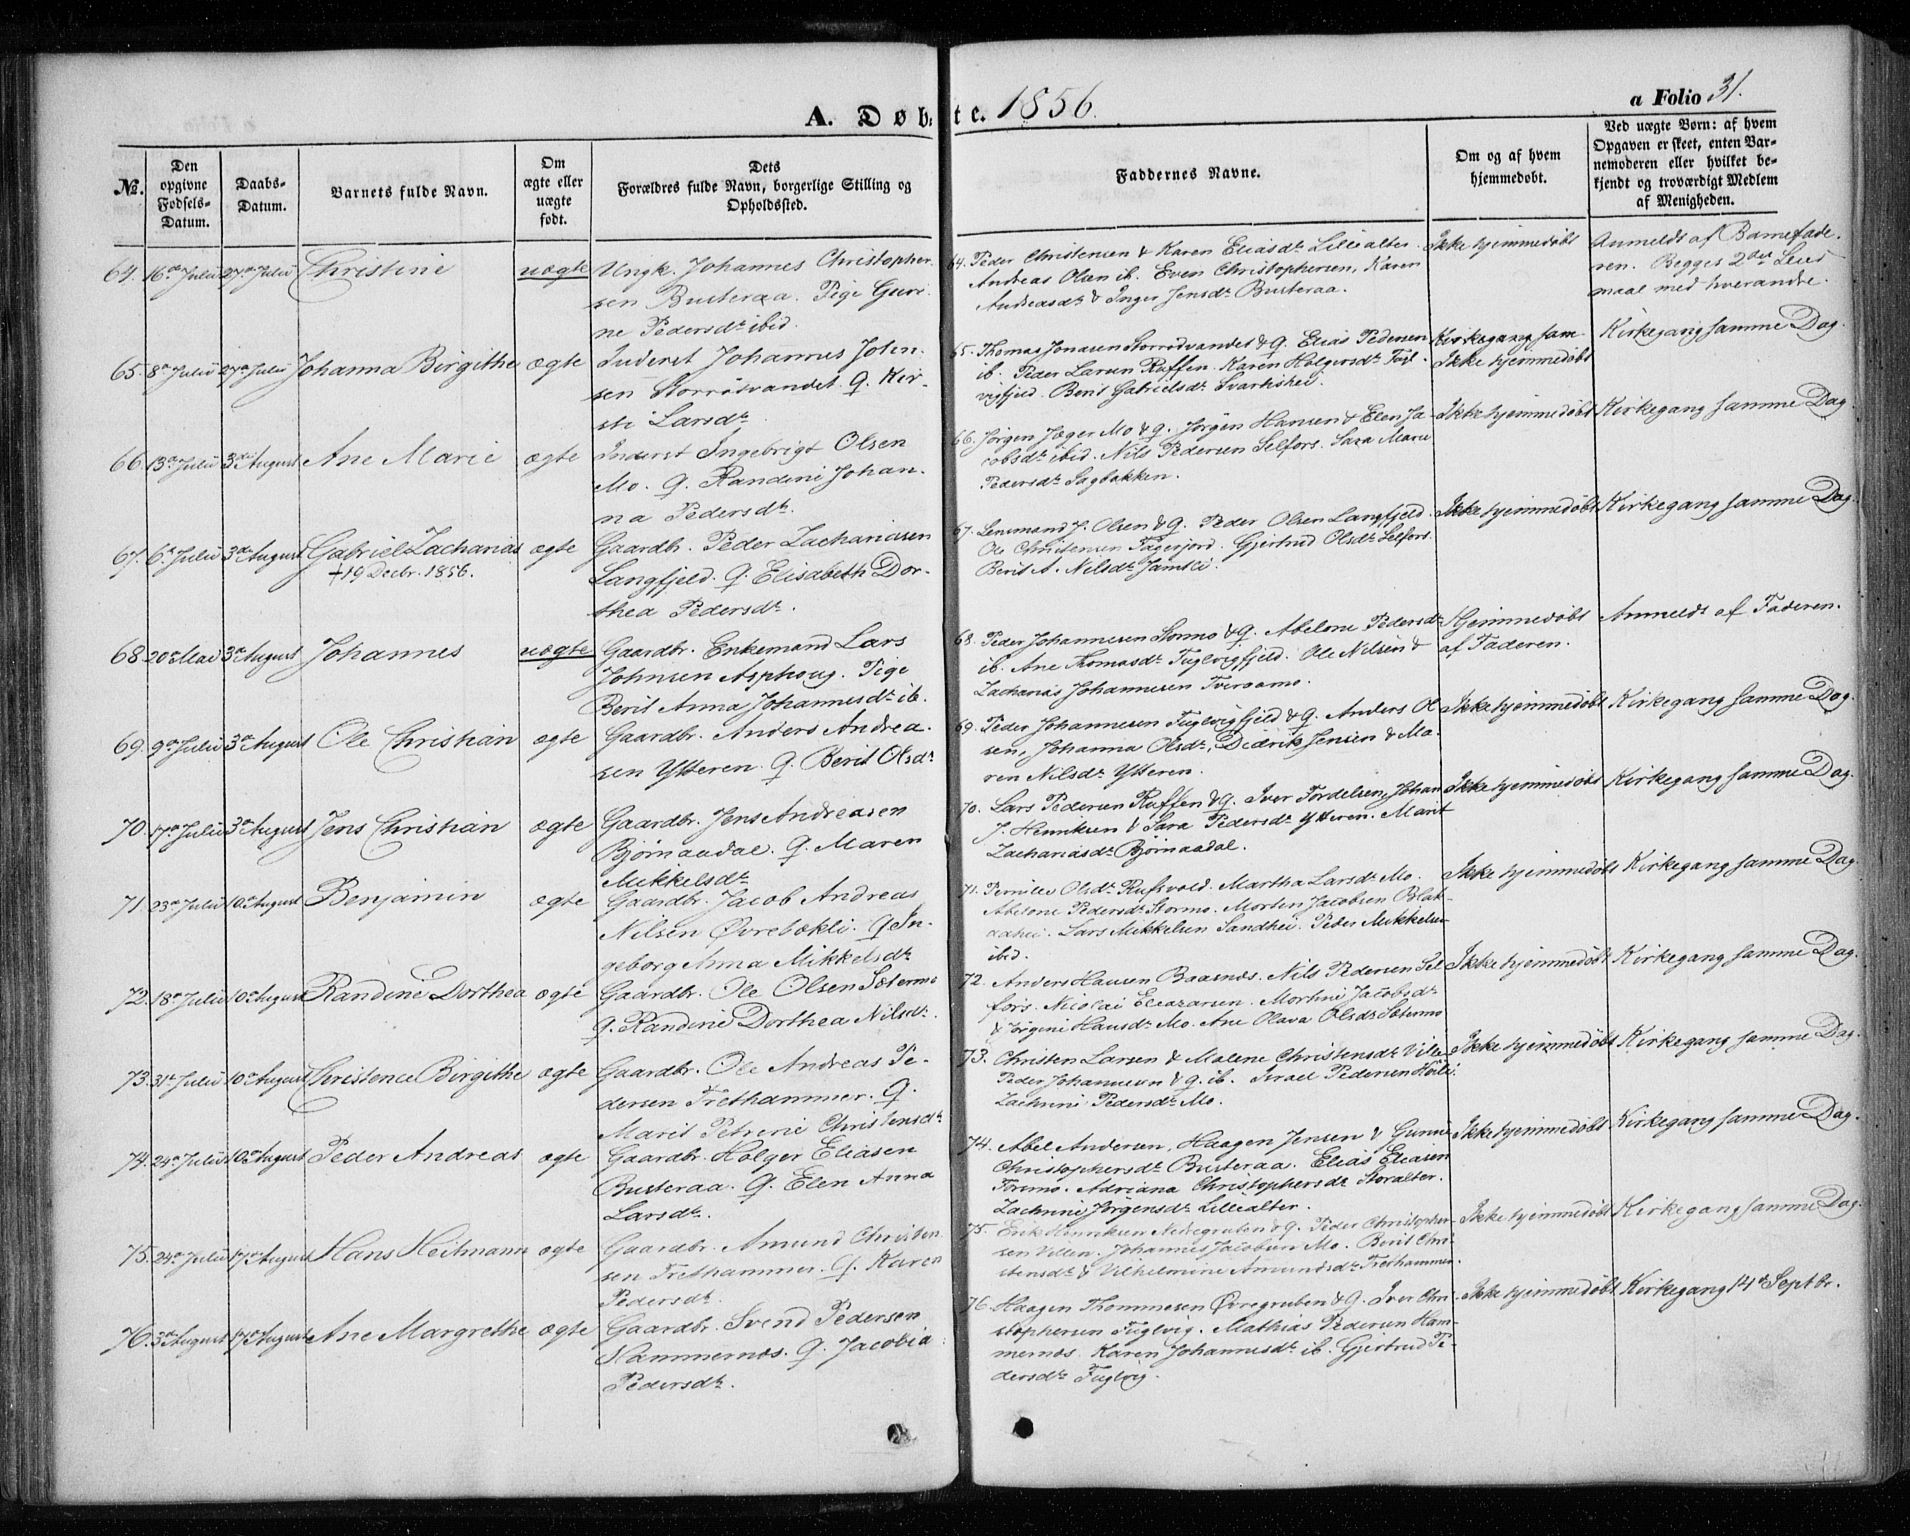 A. Døbte. 1856.
a Folio 31.
No.
Den opgivne Fødsels-Datum.
Daabs-Datum.
Barnets fulde Navn.
Om ægte eller uægte født.
Dets Forældres fulde Navn, borgerlige Stilling og Opholdssted.
Faddernes Navne.
Om og af hvem hjemmedøbt.
Ved uægte Børn: af hvem
Opgaven er skeet, enten Bar-
nemoderen eller hvilket be-
kjendt og troværdigt Medlem
af Menigheden.
64. 16de Julii 27de Julii Christine uægte Ungk. Johannes Christopher-
sen Busteraa. Pige Guri-
ne Pedersdr ibid.
64. Peder Christensen & Karen Eliasdr Lillealter.
Andreas Olsen ib. Even Christophersen, Karen
Andreasdr & Inger Jensdr Busteraa.
Ikke hjemmedøbt
Anmeldt af Barnefade-
ren. Begges 2det Leier-
maal med hverandre.
65. 8de Julii 27de Julii Johanna Birgithe ægte Inderst Johannes John-
sen Storrøvandet. Q. Kir-
sti Larsdr
65. Thomas Jonasen Storrøvandet & Q. Elias Pedersen
ib. Peder Larsen Ruffen. Karen Holgersdr Fugl-
vigfjeld. Berit Gabrielsdr Svartishei.
Kirkegang sam
Ikke hjemmedøbt
Kirkegang samme Dag.
66. 13de Julii 3de August Ane Marie ægte Inderst Ingebrigt Olsen
Mo. Q. Randine Johan-
na Pedersdr.
66. Jørgen Jæger Mo & Q. Jørgen Hansen & Elen Ja-
cobsdr ibid. Nils Pedersen Selfors. Sara Marie
Pedersdr Sagbakken.
Ikke hjemmedøbt
Kirkegang samme Dag
67. 6te Julii 3de August Gabriel Zacharias ægte Gaardbr. Peder Zachariasen
† 19 Decbr. 1856.
Langfjeld. Q. Elisabeth Dor-
thea Pedersdr.
67. Lensmand J. Olsen & Q. Peder Olsen Langfjeld.
Ole Christensen Fagerjord. Gjertrud Olsdr Selfors.
Berit A. Nilsdr Jamtli.
Ikke hjemmedøbt
Kirkegang samme Dag.
68. 20de Mai 3de August Johannes uægte Gaardbr. Enkemand Lars
Johnsen Asphoug. Pige
Berit Anna Johannesdr ib.
68. Peder Johannesen Stormo & Q. Abelone Pedersdr
ib. Ane Thomasdr Fuglvigfjeld. Ole Nilsen &
Zacharias Johannesen Tveraamo.
Hjemmedøbt
af Faderen.
Anmeldt af Faderen.
69. 9de Julii 3de August Ole Christian ægte Gaardbr. Anders Andrea-
sen Ytteren. Q. Berit Olsdr
69. Peder Johannesen Fuglvigfjeld & Q. Anders Ol-
sen, Johanna Olsdr, Didrik Jensen & Ma-
ren Nilsdr Ytteren.
Ikke hjemmedøbt
Kirkegang samme Dag.
70. 17de Julii 3de August Jens Christian ægte Gaardbr. Jens Andreasen
Bjørnaadal. Q. Maren
Mikkelsdr
70. Lars Pedersen Ruffen & Q. Iver Tordelsen, Johan
J. Henriksen & Sara Pedersdr Ytteren. Marit
Zachariasdr Bjørnaadal.
Ikke hjemmedøbt
Kirkegang samme Dag.
71. 23de Julii 10de August Benjamin ægte Gaardbr. Jacob Andreas
Nilsen Øvrebakli. Q. In-
geborg Anna Mikkelsdr
71. Pernille Olsdr Rufsvold. Martha Larsdr Mo.
Abelone Pedersdr Stormo. Morten Jacobsen Blak-
aadhei. Lars Mikkelsen Sandhei. Peder Mikkelsen
ibid.
Ikke hjemmedøbt
Kirkegang samme Dag.
72. 18de Julii 10de August Randine Dorthea ægte Gaardbr. Ole Olsen Sætermo
Q. Randine Dorthea Nilsdr.
72. Anders Hansen Baasnæs. Nils Pedersen Sel-
fors. Nicolai Eleazarsen. Mortine Jacobsdr
& Jørgine Hansdr Mo. Ane Olava Olsdr Sætermo
Ikke hjemmedøbt
Kirkegang samme Dag.
73. 31te Julii 10de August Christence Birgithe ægte Gaardbr. Ole Andreas Pe-
dersen Trethammer. Q.
Marit Petrine Christensdr
73. Christen Larsen & Malene Christensdr
Peder Johannesen & Q. ib. Israel Pedersen
Zachrine Pedersdr Mo.
Ikke hjemmedøbt
Kirkegang samme Dag.
74. 24de Julii 10de August Peder Andreas ægte Gaardbr. Holger Eliasen
Busteraa. Q. Elen Anna
Larsdr.
74. Abel Andersen, Haagen Jensen & Gunni
Christophersdr Busteraa. Elias Eliasen
Forsmo. Adriana Christophersdr Storalter.
Zachrine Jørgensdr Lillealter.
Ikke hjemmedøbt
Kirkegang samme Dag.
75. 24de Julii 17de August Hans Heitmann ægte Gaardbr. Amund Christen-
sen Trethammer. Q. Karen
Pedersdr.
75. Erik Henriksen Nedregruben & Q. Peder Christopher-
sen Villen. Johannes Jacobsen Mo. Berit Chri-
stensdr & Vilhelmine Amundsdr Trethammer.
Ikke hjemmedøbt
Kirkegang samme Dag.
76. 3de August 17de August Ane Margrethe ægte Gaardbr. Svend Pedersen
Hammernæs. Q. Jacobia
Pedersdr.
76. Haagen Thommesen Øvregruben & Q. Iver Chri-
stophersen Fuglvig. Mathias Pedersen Ham-
mernæs. Karen Johannesdr ib. Gjertrud Pe-
dersdr Fuglvig.
Ikke hjemmedøbt
Kirkegang 14de Septbr.